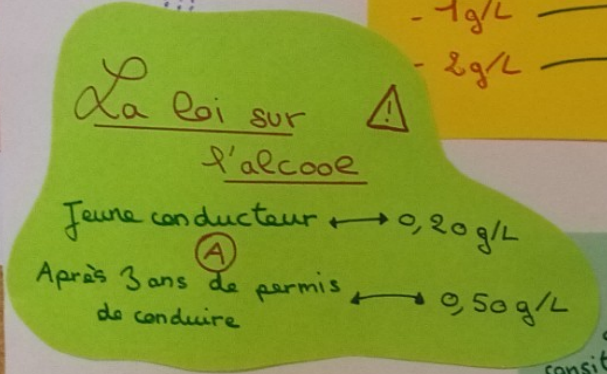 - 1g/L
- 2g/L
La loi sur
l'alcool
Jeune conducteur ↔ 0,20 g/L
A
Après 3 ans de permis
de conduire ↔ 0,50 g/L